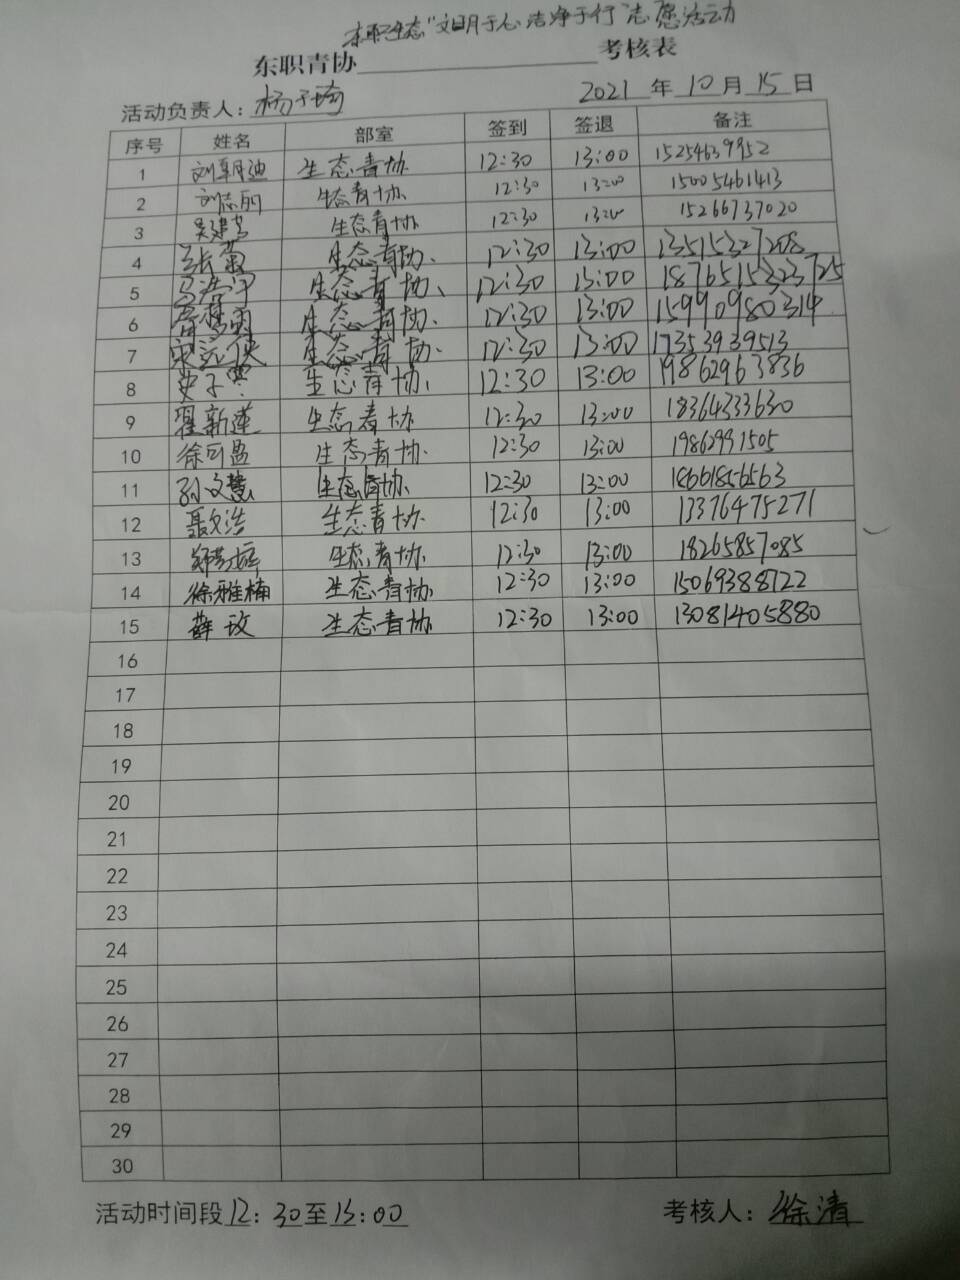 东职生态“文明于心 洁净于行”志愿活动
东职青协 考核表
活动负责人：杨子琦 2021 年 10 月 15 日
序号 姓名 部室 签到 签退 备注
1 刘朝迪 生态青协 12:30 13:00 15254639952
2 刘志丽 生态青协 12:30 13:00 15005461413
3 吴建芳 生态青协 12:30 13:00 15266737020
4 张菊 生态青协 12:30 13:00 13515327208
5 生态青协 12:30 13:00
6 生态青协 12:30 13:00 15990980314
7 宋远侠 生态青协 12:30 13:00 17353939513
8 史子 生态青协 12:30 13:00 19862963836
9 翟新莲 生态青协 12:30 13:00 18364333630
10 徐可盈 生态青协 12:30 13:00 19862991505
11 孙文慧 生态青协 12:30 13:00 18661856563
12 聂文浩 生态青协 12:30 13:00 13376475271
13 生态青协 12:30 13:00 18265857085
14 徐雅楠 生态青协 12:30 13:00 15069388722
15 薛玫 生态青协 12:30 13:00 13081405880
16
17
18
19
20
21
22
23
24
25
26
27
28
29
30
活动时间段 12：30至13：00 考核人：徐清